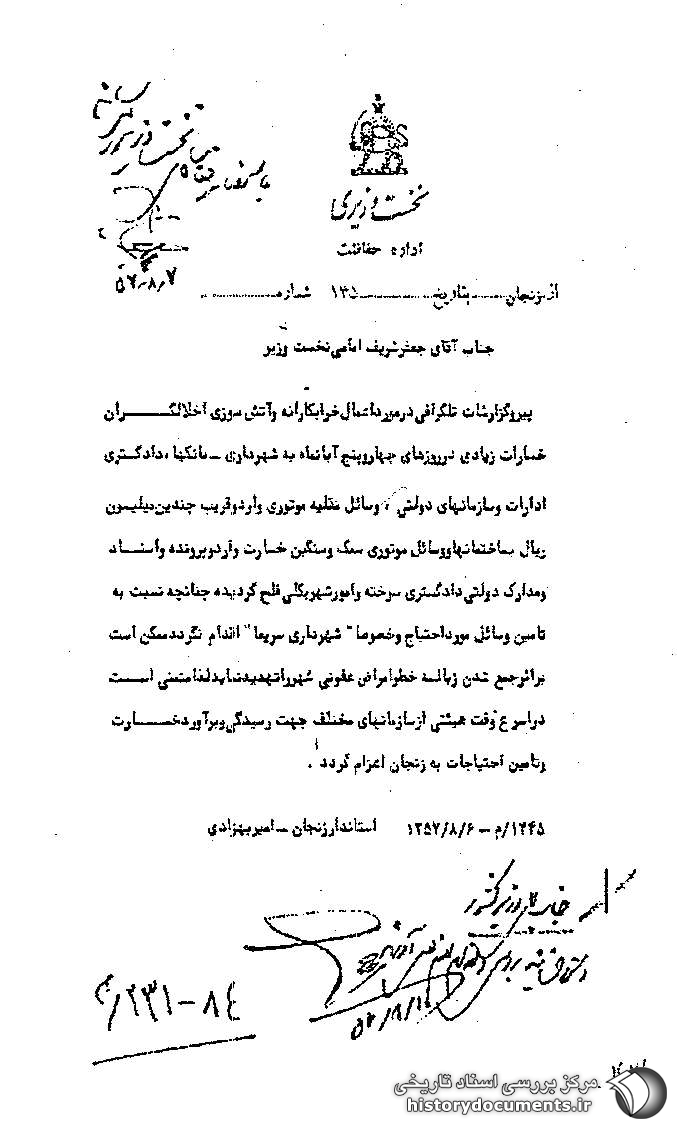 نخست وزیری
اداره حفاظت
از زنجان بتاریخ ۱۳۵ شماره
جناب آقای جعفر شریف امامی نخست وزیر
پیرو گزارشات تلگرافی در مورد اعمال خرابکارانه و آتش سوزی اخلالگران
خسارات زیادی در روزهای چهار و پنج آبانماه به شهرداری - بانکها، دادگستری
ادارات و سازمانهای دولتی، وسائل نقلیه موتوری وارد و قریب چندین میلیون
ریال بساختمانها و وسائل موتوری سبک و سنگین خسارت وارد و پرونده و اسناد
و مدارک دولتی دادگستری سوخته و امور شهر بکلی فلج گردیده چنانچه نسبت به
تامین وسائل مورد احتیاج وخصوصا" شهرداری سریعا" اقدام نگردد ممکن است
براثر جمع شدن زباله خطر امراض عفونی شهر را تهدید نماید لذا متمنی است
در اسرع وقت هیئتی از سازمانهای مختلف جهت رسیدگی و برآورد خسارت
و تامین احتیاجات به زنجان اعزام گردد.
۱۲۴۵/م - ۱۳۵۷/۸/۶ استاندار زنجان - امیر بهزادی
نخست وزیر
۵۷/۸/۷
جناب آقای وزیر کشور
۵۷/۸/۱۰
۲۳۱-۸۴/م
مرکز بررسی اسناد تاریخی
historydocuments.ir